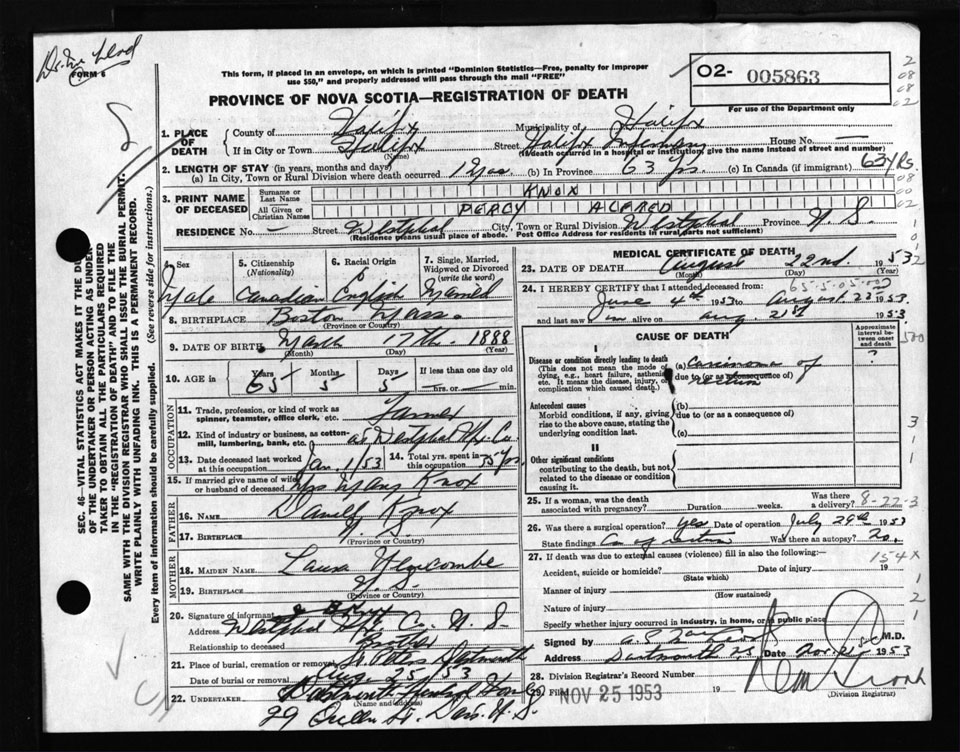 FORM 6
This form, if placed in an envelope, on which is printed "Dominion Statistics—Free, penalty for improper
use $50," and properly addressed will pass through the mail "FREE"
O2- 005863
For use of the Department only
PROVINCE OF NOVA SCOTIA—REGISTRATION OF DEATH
1. PLACE OF DEATH
County of Halifax
Municipality of Halifax
If in City or Town Halifax
(Name)
Street Halifax Infirmary House No. —
(If death occurred in a hospital or institution, give the name instead of street and number)
2. LENGTH OF STAY (in years, months and days)
(a) In City, Town or Rural Division where death occurred (b) In Province 63 yrs. (c) In Canada (if immigrant) 63 yrs
3. PRINT NAME OF DECEASED
Surname or Last Name KNOX
All Given or Christian Names PERCY ALFRED
RESIDENCE No. — Street Westphal City, Town or Rural Division Westphal Province N. S.
(Residence means usual place of abode. Post Office Address for residents in rural parts not sufficient)
4. Sex
Male
5. Citizenship (Nationality)
Canadian
6. Racial Origin
English
7. Single, Married, Widowed or Divorced (write the word)
Married
8. BIRTHPLACE Boston Mass.
(Province or Country)
9. DATE OF BIRTH March 17th 1888
(Month) (Day) (Year)
10. AGE in Years 65 Months 5 Days 5 If less than one day old
hrs. or min.
OCCUPATION
11. Trade, profession, or kind of work as spinner, teamster, office clerk, etc. Farmer
12. Kind of industry or business, as cotton-mill, lumbering, bank, etc. at Westphal Hfx Co.
13. Date deceased last worked at this occupation Jan. 1/53
14. Total yrs. spent in this occupation
15. If married give name of wife or husband of deceased Mrs Mary Knox
FATHER
16. NAME Daniel Knox
17. BIRTHPLACE
(Province or Country)
MOTHER
18. MAIDEN NAME Laura
19. BIRTHPLACE N. S.
(Province or Country)
20. Signature of informant
Address Westphal Hfx Co. N. S.
Relationship to deceased Brother
21. Place of burial, cremation or removal St. Peters Dartmouth
Date of burial or removal Aug. 25 53
22. UNDERTAKER Dartmouth Funeral Home
(Name and address)
29 Queen St. Dart. N. S.
MEDICAL CERTIFICATE OF DEATH
23. DATE OF DEATH August 22nd. 1953
(Month) (Day) (Year)
24. I HEREBY CERTIFY that I attended deceased from:
June 4th 1953 to August 22 1953
and last saw him alive on Aug. 21st 1953
CAUSE OF DEATH
Approximate interval between onset and death
I
Disease or condition directly leading to death
(This does not mean the mode of dying, e.g., heart failure, asthenia, etc. It means the disease, injury, or complication which caused death.)
(a) Carcinoma of rectum
due to (or as consequence of)
?
Antecedent causes
Morbid conditions, if any, giving rise to the above cause, stating the underlying condition last.
(b)
due to (or as a consequence of)
(c)
II
Other significant conditions
contributing to the death, but not related to the disease or condition causing it.
25. If a woman, was the death associated with pregnancy? Duration weeks. Was there a delivery?
8-22-3
26. Was there a surgical operation? Yes Date of operation July 29th 1953
State findings Ca of rectum Was there an autopsy? no.
27. If death was due to external causes (violence) fill in also the following:—
154X
Accident, suicide or homicide? Date of injury 19
(State which)
Manner of injury
(How sustained)
Nature of injury
Specify whether injury occurred in industry, in home, or in public place
Signed by M.D.
Address Dartmouth N.S. Date Nov. 21 1953
28. Division Registrar's Record Number
29. Filed NOV 25 1953
(Division Registrar)
SEC. 46—VITAL STATISTICS ACT MAKES IT THE DUTY
OF THE UNDERTAKER OR PERSON ACTING AS UNDER-
TAKER TO OBTAIN ALL THE PARTICULARS REQUIRED
IN THE "REGISTRATION OF DEATH" AND TO FILE THE
SAME WITH THE DIVISION REGISTRAR WHO SHALL ISSUE THE BURIAL PERMIT.
WRITE PLAINLY WITH UNFADING INK. THIS IS A PERMANENT RECORD.
Every item of information should be carefully supplied. (See reverse side for instructions.)